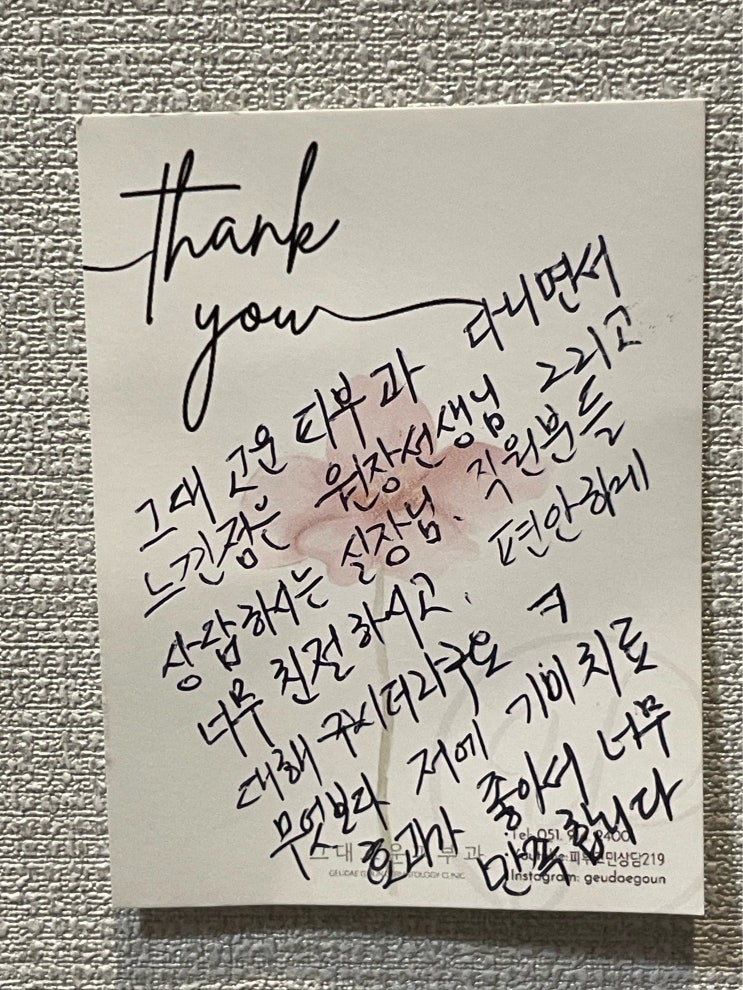 thank
you
그대 고운 피부과 다니면서
느낀점은 원장선생님 그리고
상담하시는 실장님. 직원분들
너무 친절하시고. 편안하게
대해 주시더라구요
무엇보다 저에 기미치료
효과가 좋아서 너무
만족합니다
그대 운피부과
GEUDAE CLINIC
Tel. 051. 2400
Youtube:피부 민상담219
Instagram: geudaegoun